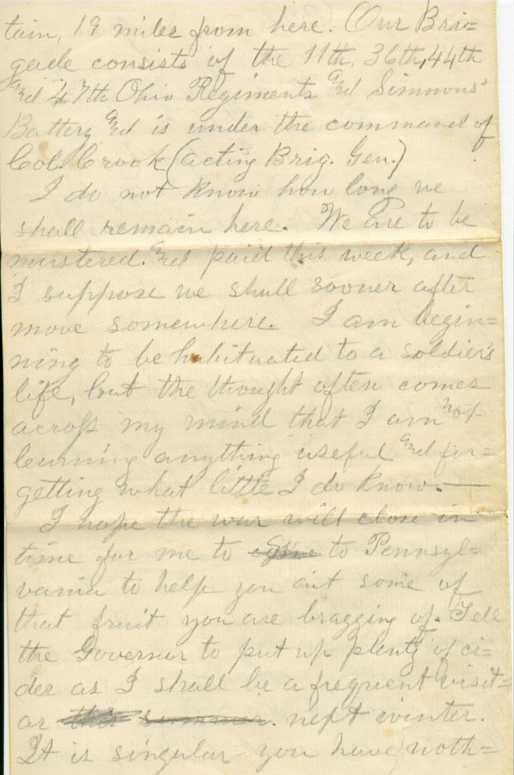 tain, 19 miles from here. Our Bri=
gade consists of the 11th, 36th, 44th
And 47th Ohio Regiments And Simmons'
Battery And is under the command of
Col. Crook (acting Brig. Gen.)
I do not know how long we
shall remain here. We are to be
mustered And paid this week, and
I suppose we shall sooner after
move somewhere. I am begin=
ning to be habituated to a soldier's
life, but the thought often comes
across my mind that I am not
learning anything useful And for=
getting what little I do know.—
I hope the war will close in
time for me to to Pennsyl=
vania to help you out some of
that fruit you are bragging of. Tell
the Governor to put up plenty of ci=
der as I shall be a frequent visit=
or this summer. next winter.
It is singular you have noth=